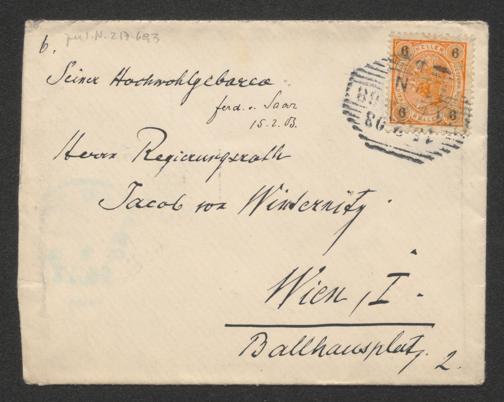 6.
Seiner Hochwohlgeboren
ferd. v. Saar
15.2.03.
Herrn Regierungsrath
Jacob von Winternitz
Wien, I.
Ballhausplatz, 2.
6 HELLER 6
6 6